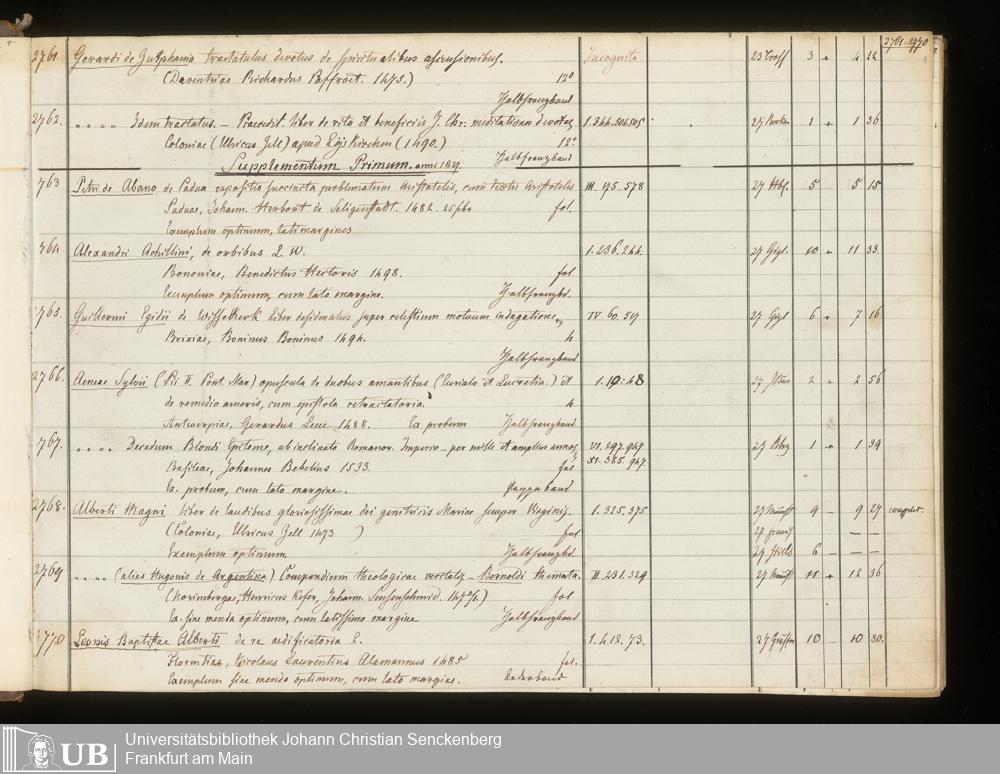 2761-2770
2761. Gerardi de Zutphania tractatulus devotus de spiritualibus ascensionibus. Incognito 23 3 4 22
(Daventriae Richardus Paffroet. 1475.) 12°
Halbfranzband
2762. " " " " Idem tractatus. – Praecedit. liber de vita et beneficiis J. Chr. meditationes devotae 1.344.504.505 27 1 1 36
Coloniae (Ulricus Zell) apud Lijskirchen (1490.) 12°
Supplementum Primum. anni 1827. Halbfranzband
763 Petri de Abano de Padua expositio succincta problematum Aristotelis, cum textu Aristotelis III. 75. 578 27 5 5 15
Paduae, Johann. Herbort de Seligenstadt. 1482. 25 febr fol.
Exemplum optimum, lati marginis
764 Alexandri Achillini, de orbibus L. IV. 1.236.244. 27 10 11 33.
Bononiae, Benedictus Hectoris 1498. fol
Exemplum optimum, cum lato margine. Halbfranzbd.
2765. Guillermi Egidii de Wissekerk Liber desideratus super celestium motuum indagatione IV 60. 57 27 6 7 16
Brixiae, Boninus Boninus 1494. 4
Halbfranzband
2766. Aeneae Sylvii (Pii II. Pont. Max) opuscula de duobus amantibus (Eurialo et Lucretia.) et 1.19:48 27 2 2 56
de remedio amoris, cum epistola retractatoria. 4
Antverpiae, Gerardus Leeu 1488. Ex probum Halbfranzband
767. " " " " Decadum Blondi Epitome, ab inclinato Romanor. Imperio – per mille et amplius annos VI. 297.947 27 1 1 39
Basileae, Johannes Bebelius 1533. fol XI. 385. 947
Ex. probum, cum lato margine. Pappband
2768. Alberti Magni liber de laudibus gloriosissimae dei genitricis Mariae semper Virginis. 1.325.375 27 9 – 9 27 complet.
(Coloniae, Ulricus Zell 1473 ) fol 27
Exemplum optimum Halbfranzbd. 27 6 –
2769 " " " " (alias Hugonis de Argentina) Compendium theologicae veritatis – Bernoldi themata. II. 231.329 27 11 12 36
(Norimbergae, Henricus Kefer, Johann. Sensenschmid. 1470/1.) fol
Ex sine menda optimum, cum latissimo margine Halbfranzband
2770 Leonis Baptistae Alberti de re aedificatoria L. 1.4.12.73. 27 10 – 10 30.
Florentiae, Nicolaus Laurentius Alamannus 1485 fol.
Exemplum sine menda optimum, cum lato margine. Lederband
UB Universitätsbibliothek Johann Christian Senckenberg
Frankfurt am Main